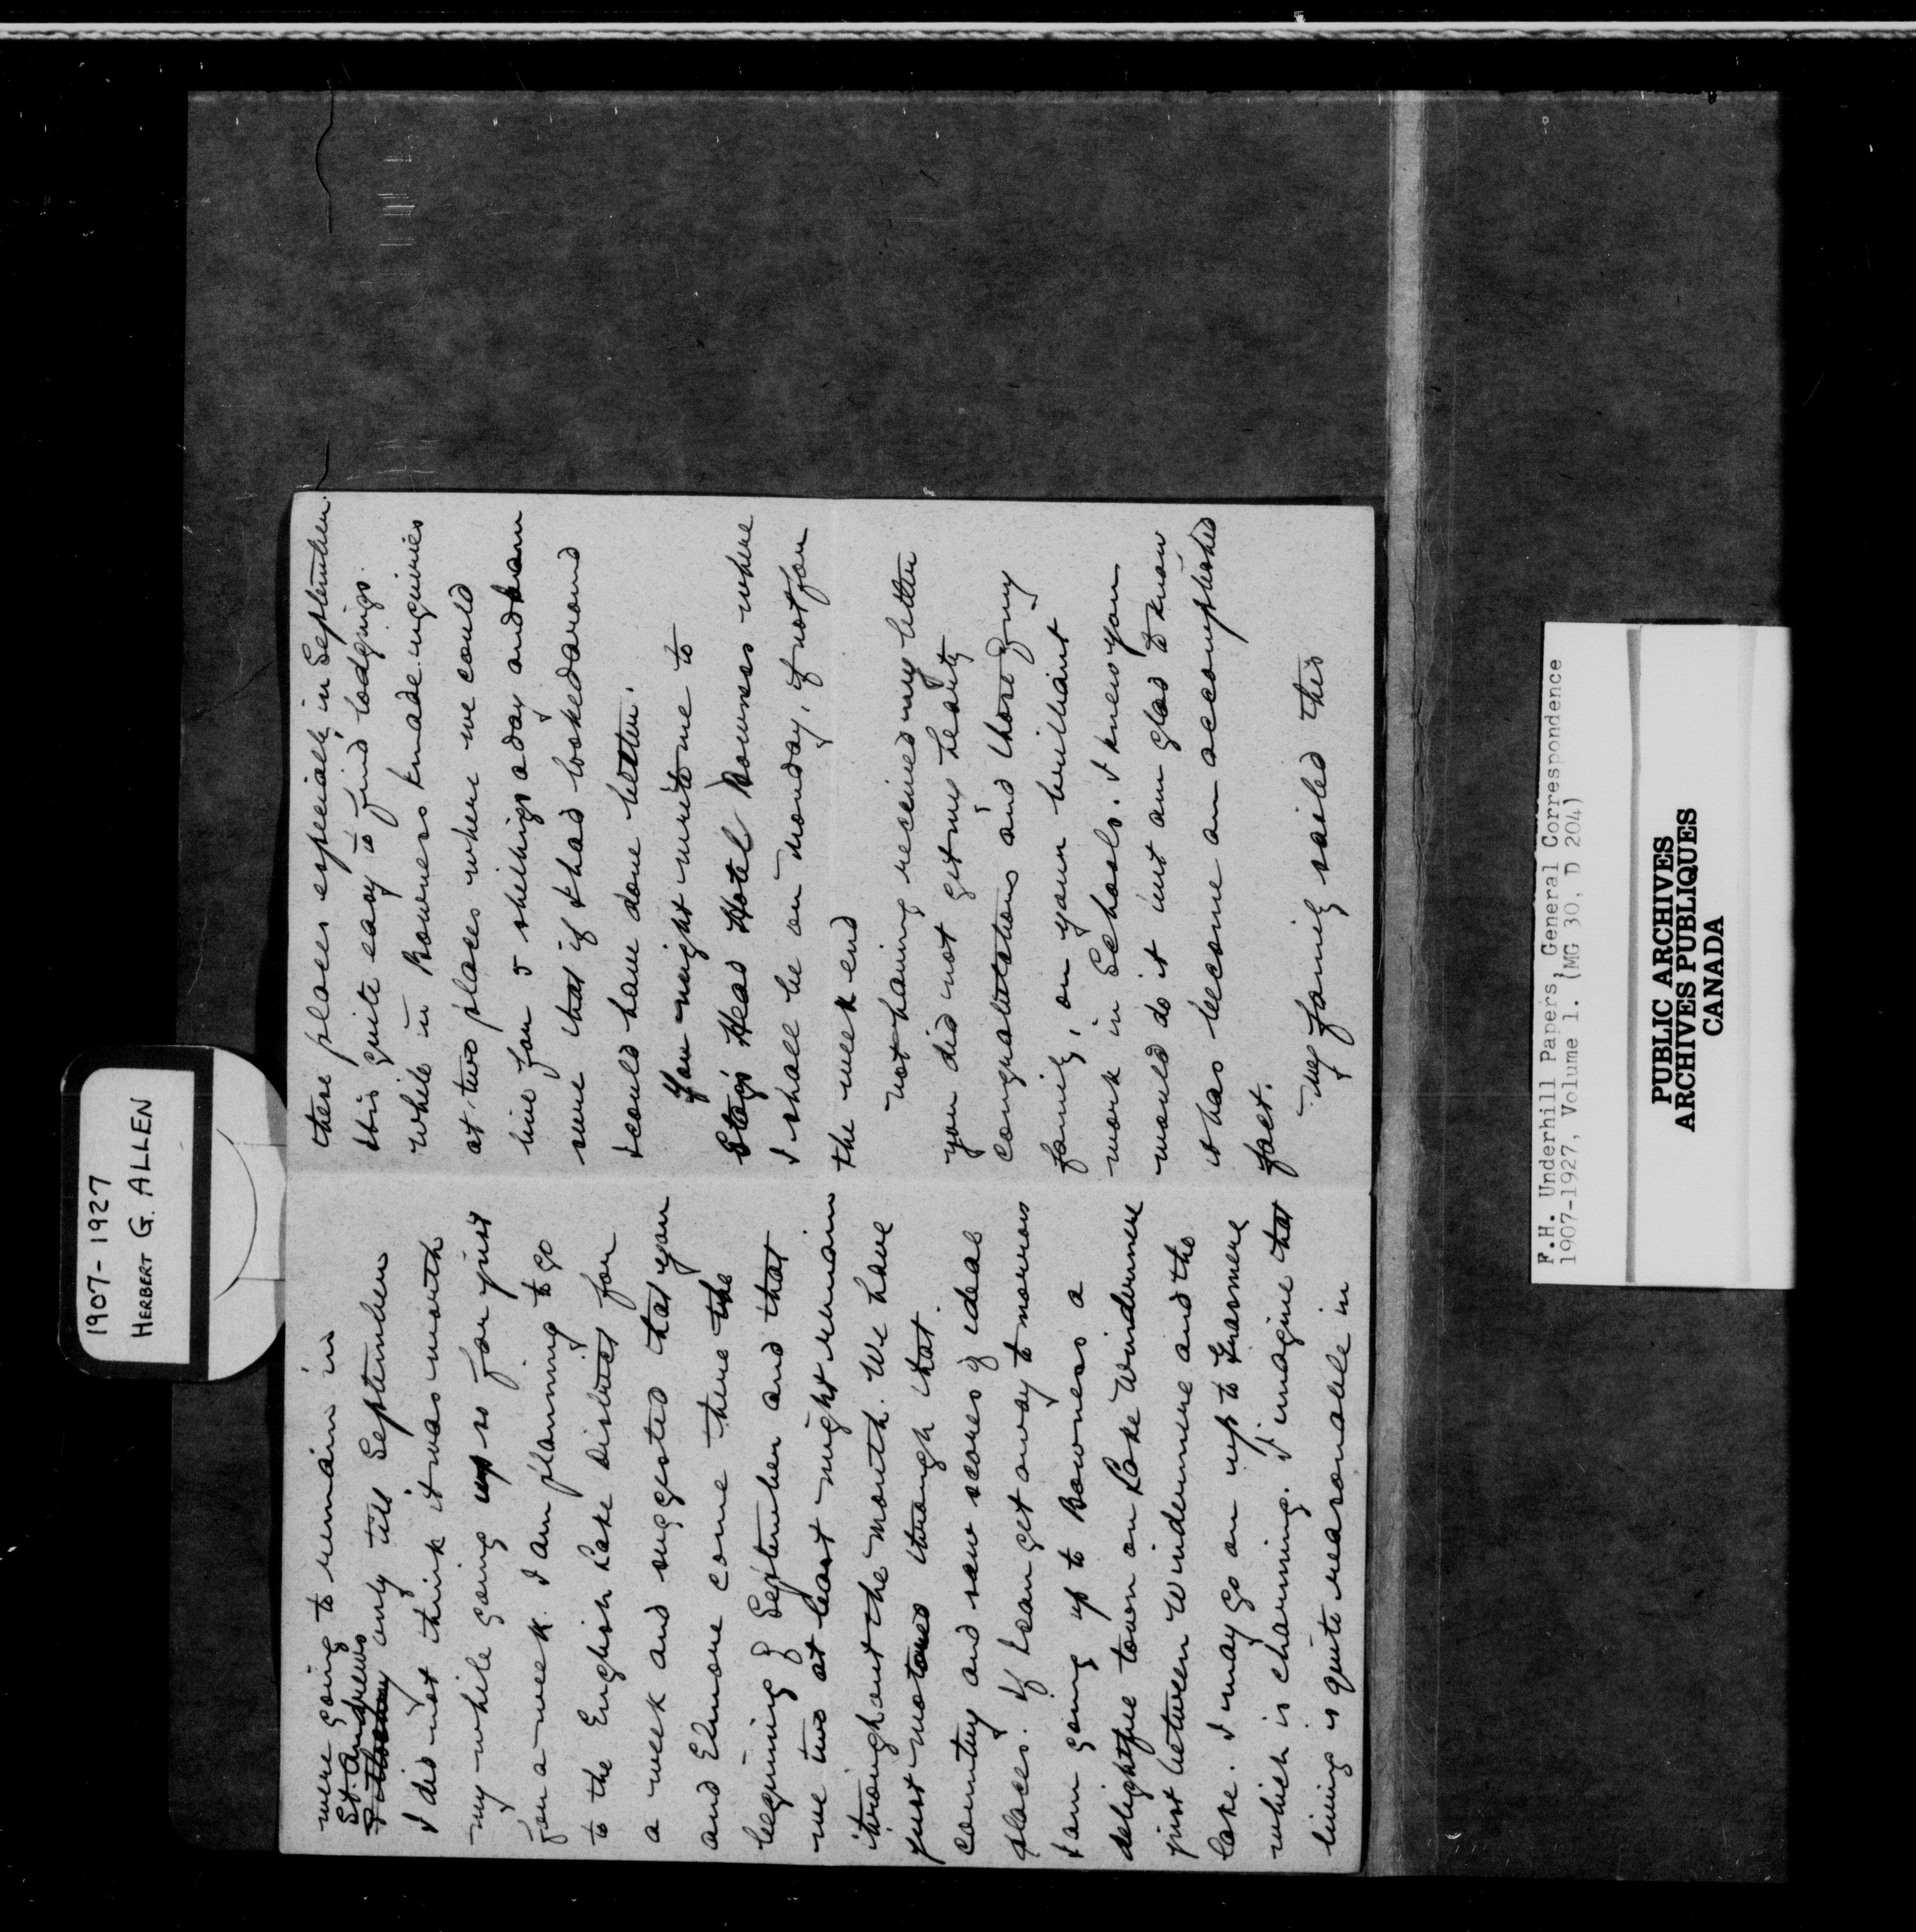 1907-1927
HERBERT G. ALLEN
were going to remain in
St. Andrews
only till September
I did not think it was worth
my while going up so far just
for a week. I am planning to go
to the English Lake District for
a week and suggested that you
and Elmore come there the
beginning of September and that
we two at least might remain
throughout the month. We have
just motored through that
country and saw scores of ideal
places. If I can get away to-morrow
I am going up to Bowness a
delightful town on Lake Windermere
just between Windermere and the
lake. I may go on up to Grasmere
which is charming. I imagine that
living is quite reasonable in
these places especially in September.
It is quite easy to find lodgings.
While in Bowness I made inquiries
at two places where we could
live for 5 shillings a day and I am
sure that if I had looked around
I could have done better.
You might write me to
Stag's Head Hotel Bowness where
I shall be on Monday, if not for
the week end
Not having received my letter
you did not get my hearty
congratulations and those of my
family, on your brilliant
work in Schools. I knew you
would do it but am glad to know
it has become an accomplished
fact.
My family sailed this
F.H. Underhill Papers, General Correspondence
1907-1927, Volume 1. (MG 30, D 204)
PUBLIC ARCHIVES
ARCHIVES PUBLIQUES
CANADA